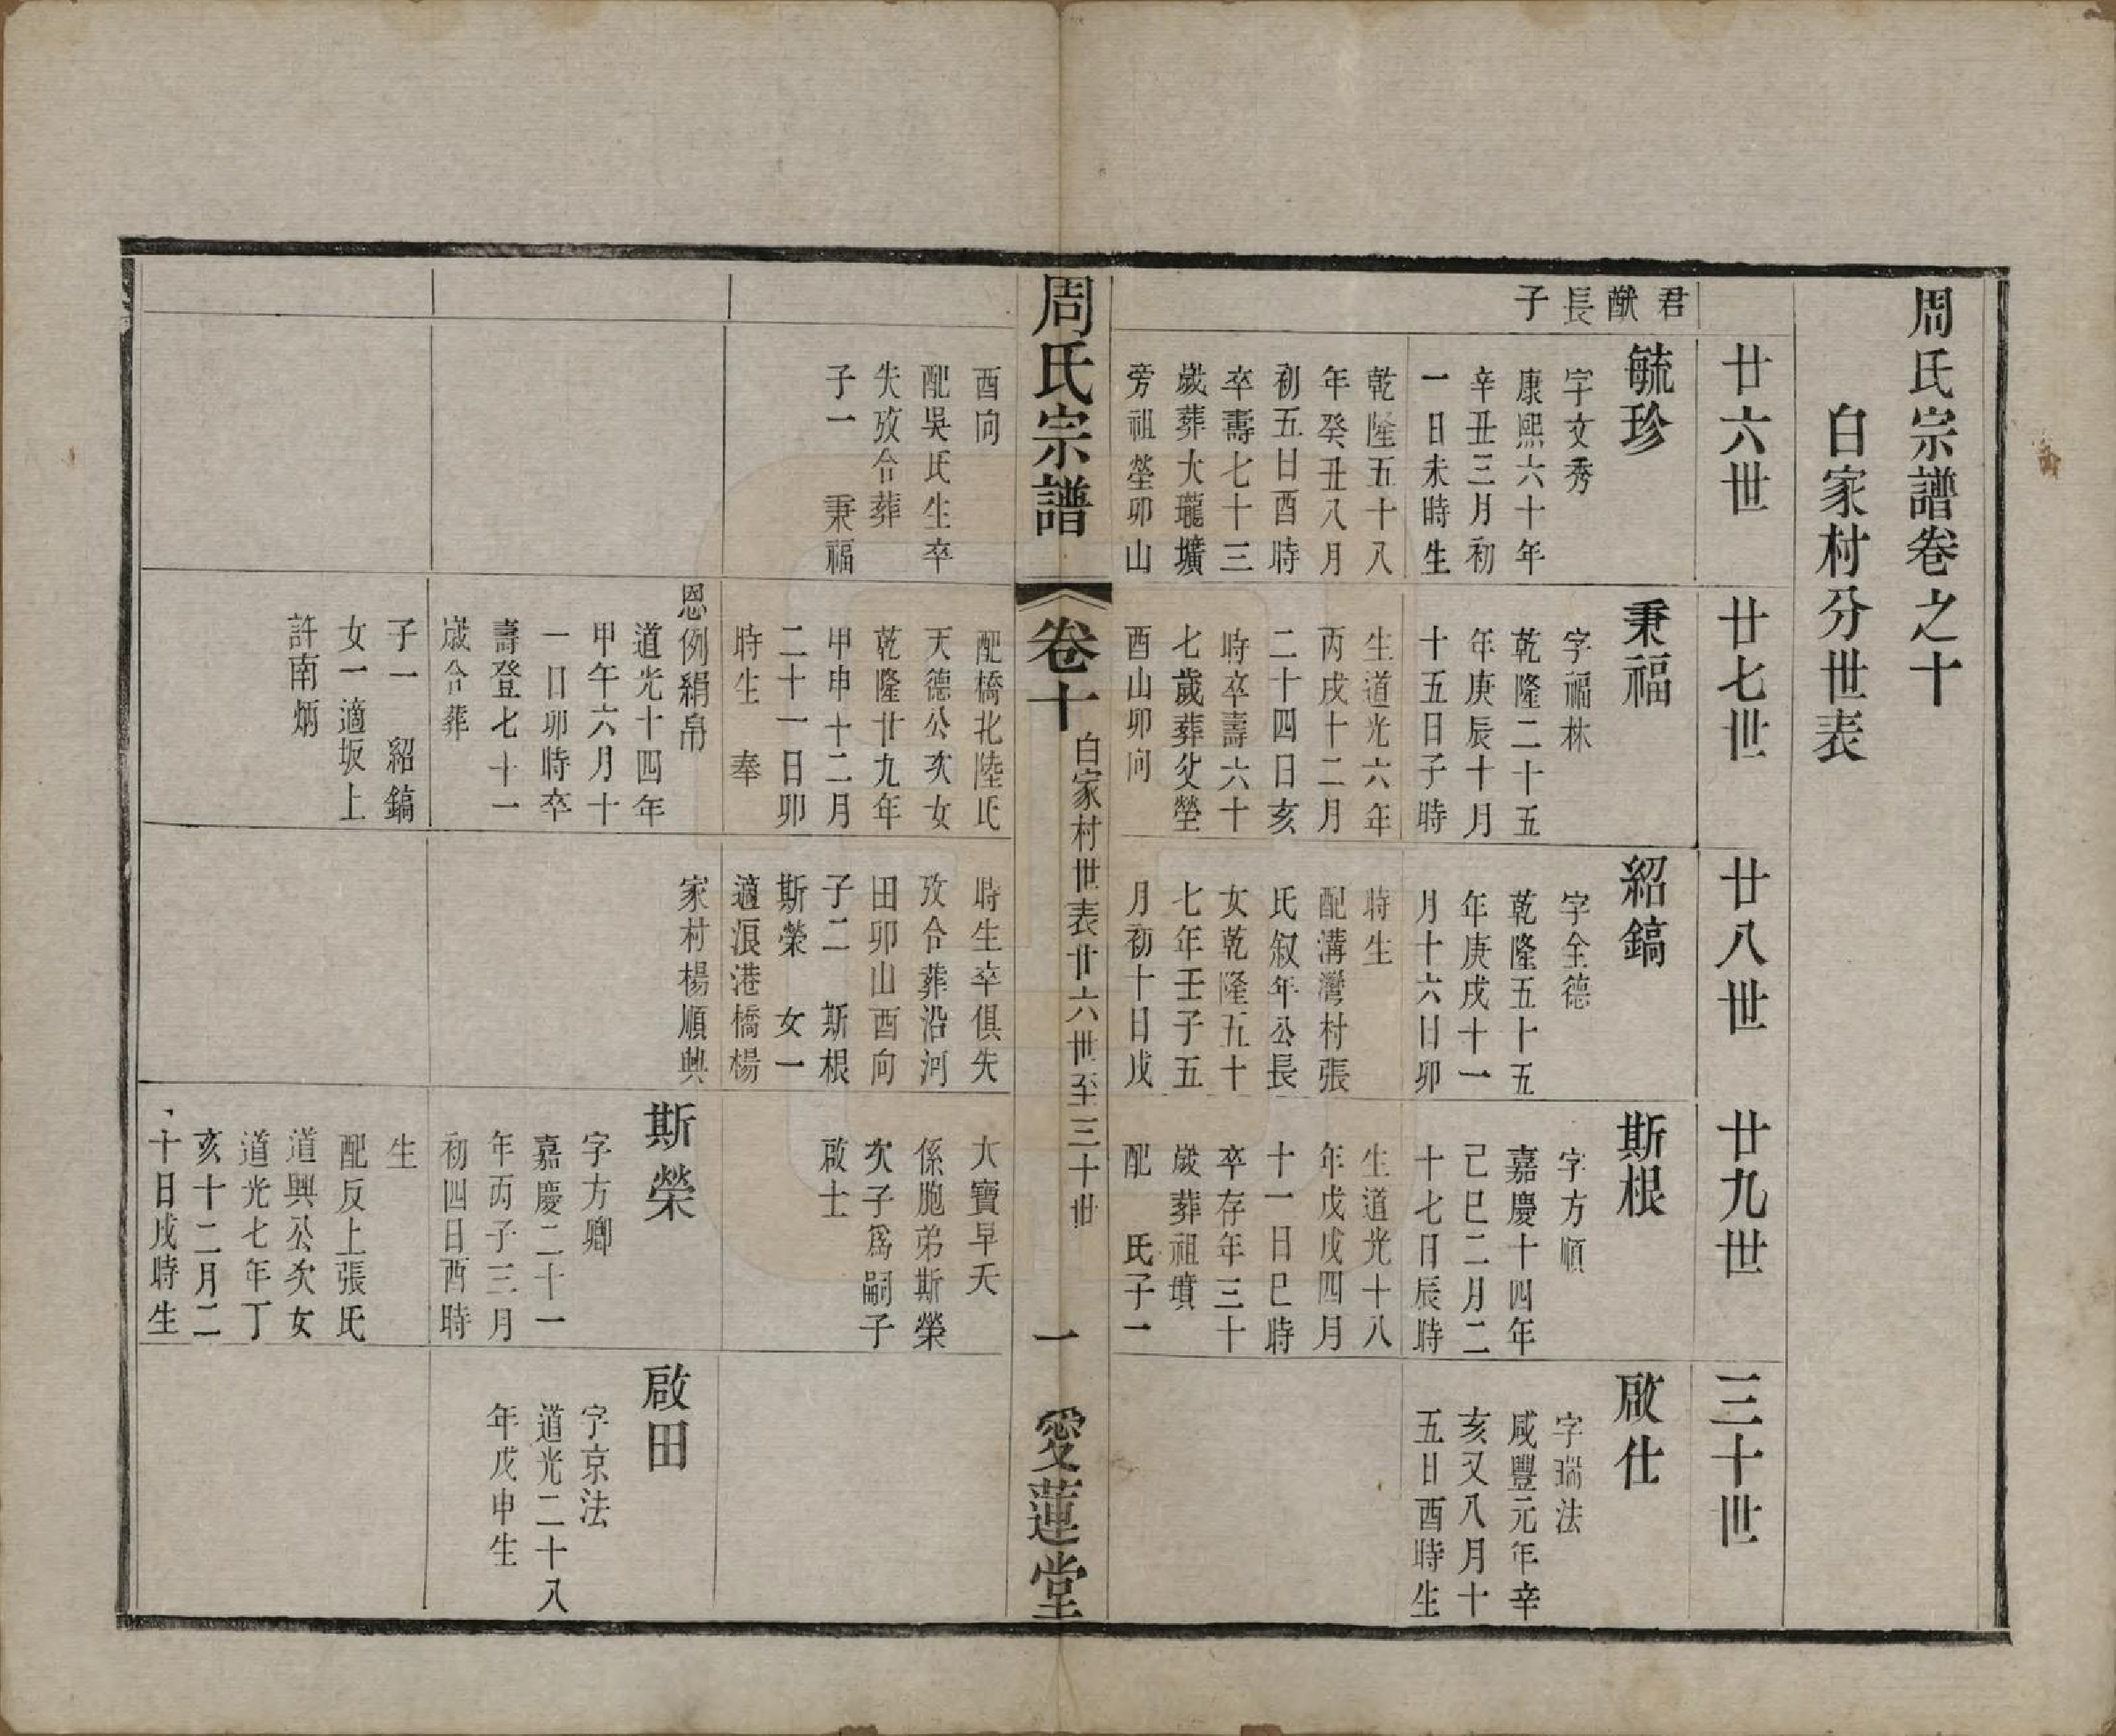 周氏宗譜卷之十
白家村分世表
廿六世
廿七世
廿八世
廿九世
三十世
君猷長子
毓珍
字文秀
康熙六十年
辛丑三月初
一日未時生
乾隆五十八
年癸丑八月
初五日酉時
卒壽七十三
歲葬大壠壙
旁祖塋卯山
秉福
字福林
乾隆二十五
年庚辰十月
十五日子時
生道光六年
丙戌十二月
二十四日亥
時卒壽六十
七歲葬父塋
酉山卯向
紹鎬
字全德
乾隆五十五
年庚戌十一
月十六日卯
時生
配溝灣村張
氏叙年公長
女乾隆五十
七年壬子五
月初十日戌
斯根
字方順
嘉慶十四年
己巳二月二
十七日辰時
生道光十八
年戊戌四月
十一日巳時
卒存年三十
歲葬祖墳
配　氏子一
啟仕
字瑞法
咸豐元年辛
亥又八月十
五日酉時生
周氏宗譜
卷十
白家村世表廿六世至三十世
一
愛蓮堂
酉向
配吳氏生卒
失攷合葬
子一　秉福
配橋北陸氏
天德公次女
乾隆廿九年
甲申十二月
二十一日卯
時生　奉
恩例絹帛
道光十四年
甲午六月十
一日卯時卒
壽登七十一
歲合葬
子一　紹鎬
女一適坂上
許南炳
時生卒俱失
攷合葬沿河
田卯山酉向
子二　斯根
斯榮　女一
適浪港橋楊
家村楊順興
大寶早夭
係胞弟斯榮
次子爲嗣子
啟士
斯榮
字方卿
嘉慶二十一
年丙子三月
初四日酉時
生
配反上張氏
道興公次女
道光七年丁
亥十二月二
十日戌時生
啟田
字京法
道光二十八
年戊申生